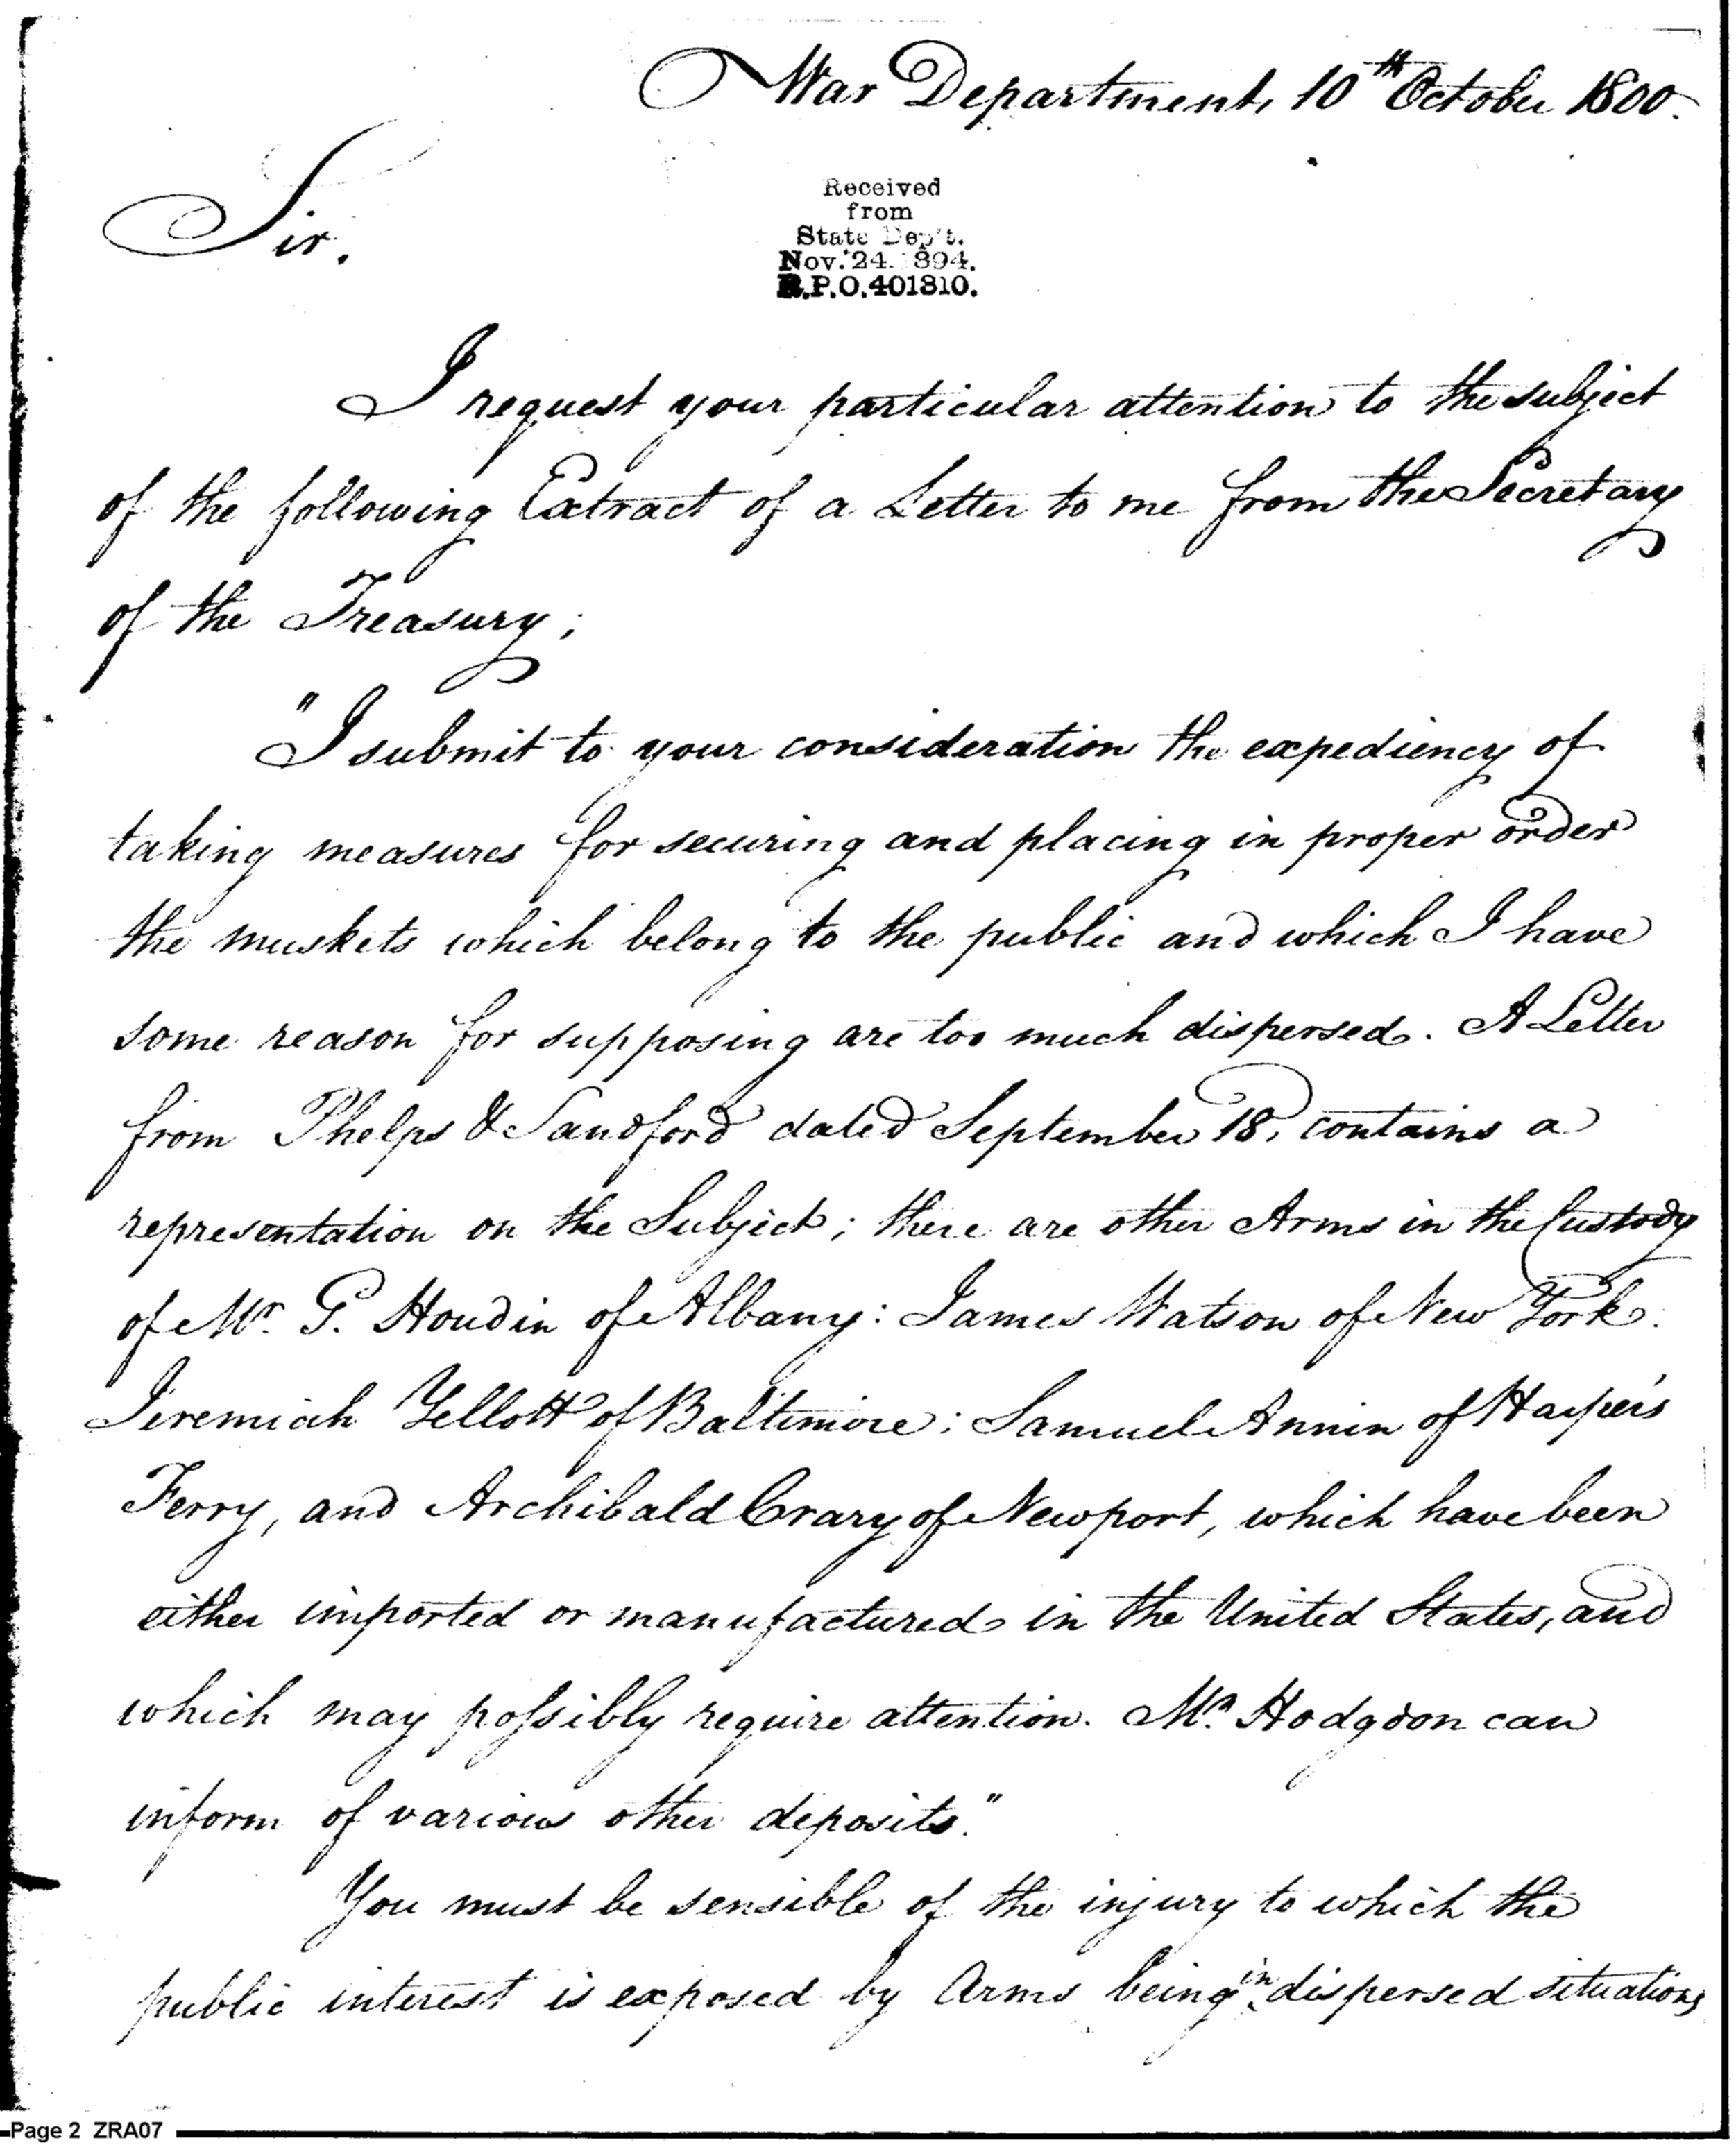 War Department, 10th October 1800.
Sir.
Received
from
State Dep't.
Nov. 24. 1894.
R.P.O. 401810.
I request your particular attention to the subject
of the following Extract of a Letter to me from the Secretary
of the Treasury;
"I submit to your consideration the expediency of
taking measures for securing and placing in proper order
the muskets which belong to the public and which I have
some reason for supposing are too much dispersed. A Letter
from Phelps & Sandford dated September 18, contains a
representation on the Subject; there are other Arms in the Custody
of Mr. G. Houdin of Albany: James Watson of New York.
Jeremiah Yellott of Baltimore: Samuel Annin of Harper's
Ferry, and Archibald Crary of Newport, which have been
either imported or manufactured in the United States, and
which may possibly require attention. Mr. Hodgdon can
inform of various other deposits."
You must be sensible of the injury to which the
public interest is exposed by Arms being in dispersed situations
Page 2 ZRA07